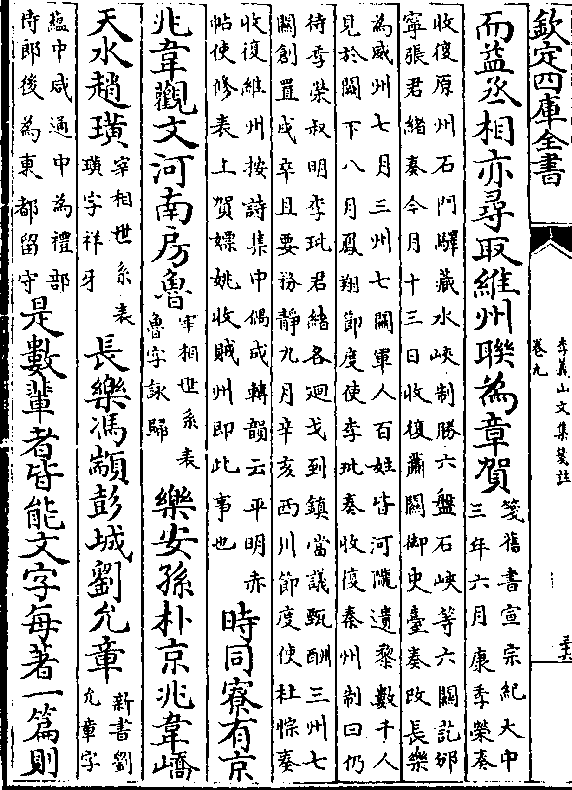 欽定四庫全書
李義山文集箋註
卷九
而益丞相亦尋取維州聯為章賀
箋舊書宣宗紀大中
三年六月康季榮奏
收復原州石門驛藏水峽制勝六盤石峽等六關訖邠
寧張君緒奏今月十三日收復蕭關御史臺奏改長樂
為威州七月三州七關軍人百姓皆河隴遺黎數千人
見於闕下八月鳳翔節度使李玭奏收復秦州制曰仍
待季榮叔明李玭君緒各廻戈到鎮當議甄酬三州七
關創置戍卒且要務靜九月辛亥西川節度使杜悰奏
收復維州按詩集中偶成轉韻云平明赤
帖使修表上賀嫖姚收賊州即此事也
時同寮有京
兆韋觀文河南房魯
宰相世系表
魯字詠歸
樂安孫朴京兆韋嶠
天水趙璜
宰相世系表
璜字祥牙
長樂馮顓彭城劉允章
新書劉
允章字
蘊中咸通中為禮部
侍郎後為東都留守
是數輩者皆能文字每著一篇則